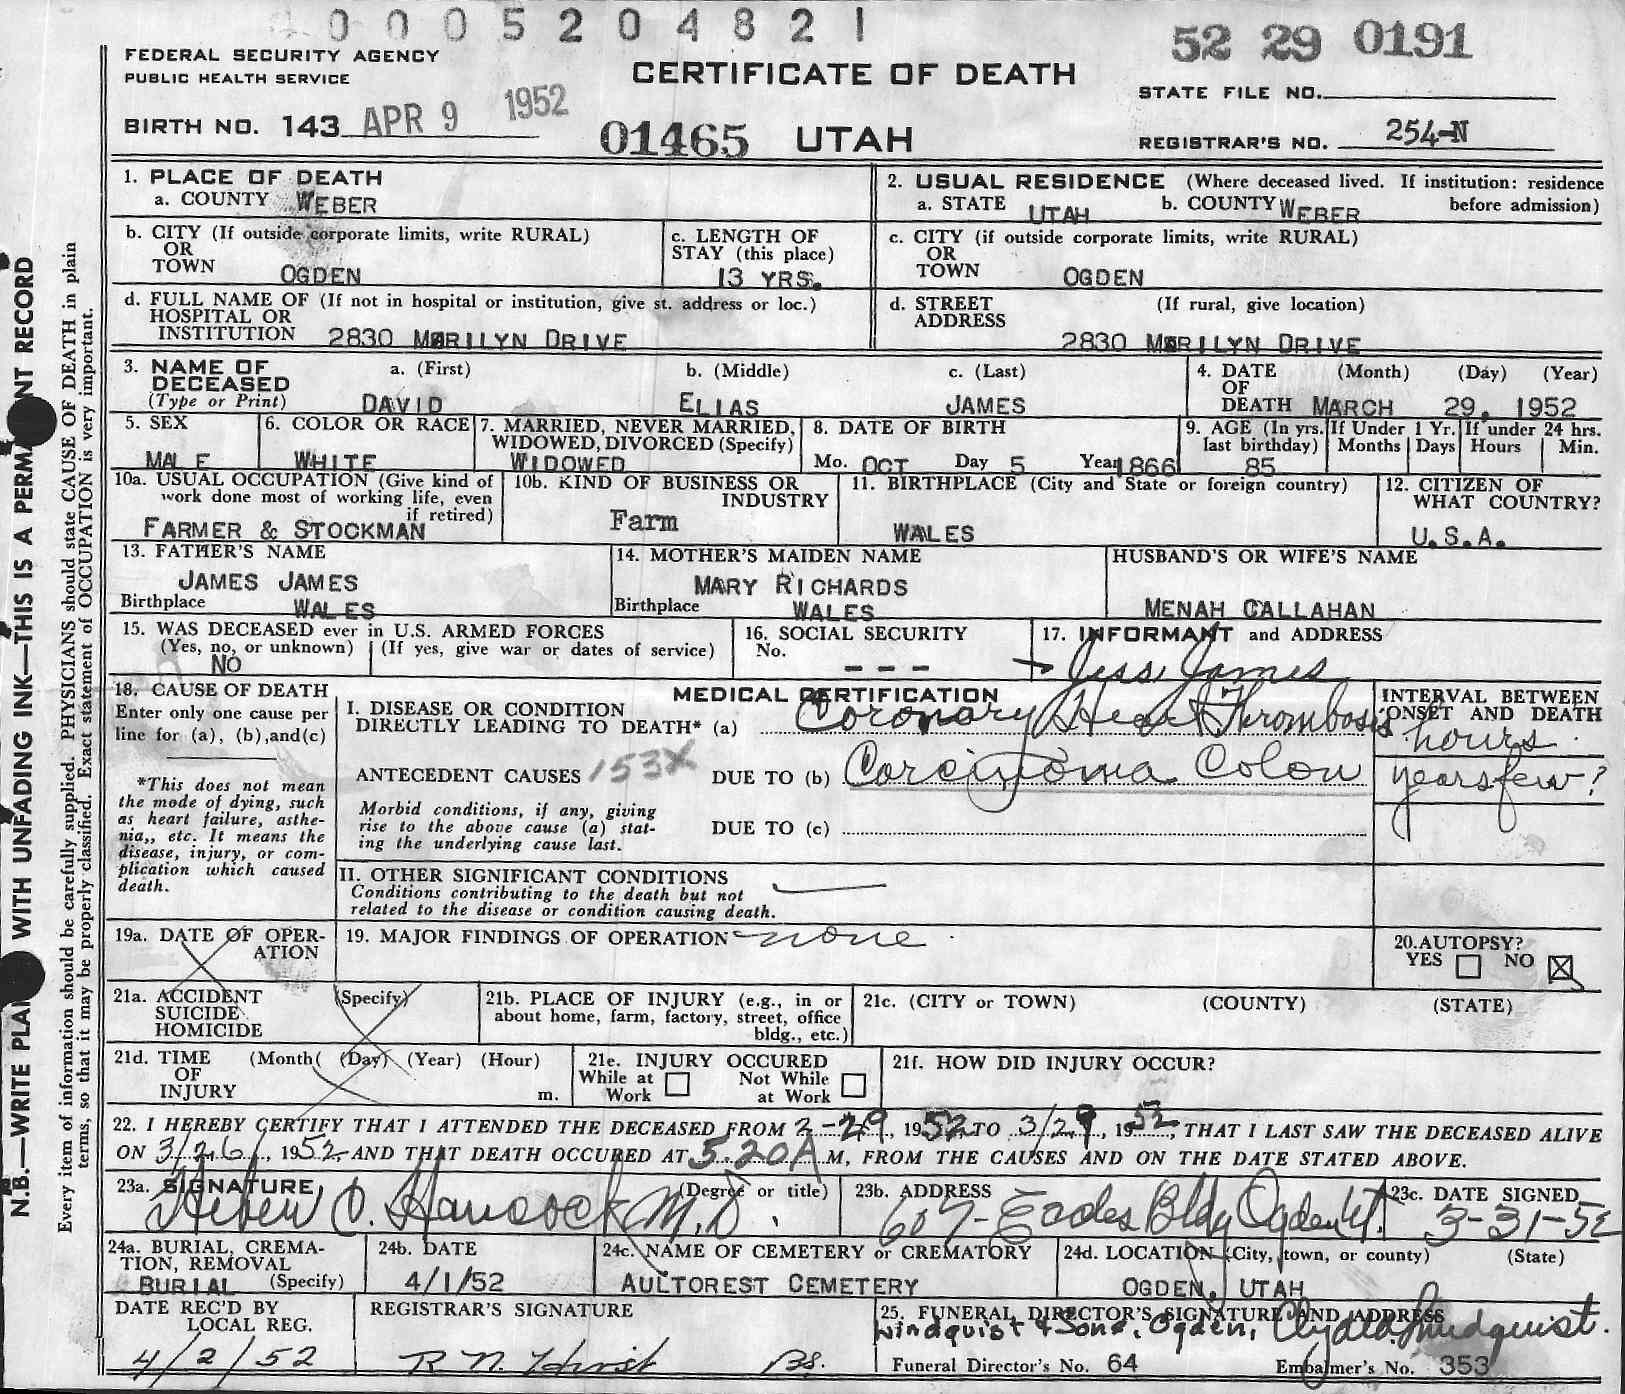 0005204821
52 29 0191
FEDERAL SECURITY AGENCY
PUBLIC HEALTH SERVICE
CERTIFICATE OF DEATH
STATE FILE NO.
BIRTH NO. 143 APR 9 1952
01465 UTAH
REGISTRAR'S NO. 254-N
N.B.—WRITE PLAI WITH UNFADING INK—THIS IS A PERMA NT RECORD
Every item of information should be carefully supplied. PHYSICIANS should state CAUSE OF DEATH in plain
terms, so that it may be properly classified. Exact statement of OCCUPATION is very important.
1. PLACE OF DEATH
a. COUNTY WEBER
2. USUAL RESIDENCE (Where deceased lived. If institution: residence
a. STATE UTAH b. COUNTY WEBER before admission)
b. CITY (If outside corporate limits, write RURAL)
OR
TOWN OGDEN
c. LENGTH OF
STAY (this place)
13 YRS.
c. CITY (if outside corporate limits, write RURAL)
OR
TOWN OGDEN
d. FULL NAME OF (If not in hospital or institution, give st. address or loc.)
HOSPITAL OR
INSTITUTION 2830 MARILYN DRIVE
d. STREET (If rural, give location)
ADDRESS
2830 MARILYN DRIVE
3. NAME OF a. (First) b. (Middle) c. (Last)
DECEASED
(Type or Print) DAVID ELIAS JAMES
4. DATE (Month) (Day) (Year)
OF
DEATH MARCH 29. 1952
5. SEX
MALE
6. COLOR OR RACE
WHITE
7. MARRIED, NEVER MARRIED,
WIDOWED, DIVORCED (Specify)
WIDOWED
8. DATE OF BIRTH
Mo. OCT Day 5 Year 1866
9. AGE (In yrs. If Under 1 Yr. If under 24 hrs.
last birthday) Months Days Hours Min.
85
10a. USUAL OCCUPATION (Give kind of
work done most of working life, even
if retired)
FARMER & STOCKMAN
10b. KIND OF BUSINESS OR
INDUSTRY
Farm
11. BIRTHPLACE (City and State or foreign country)
WALES
12. CITIZEN OF
WHAT COUNTRY?
U.S.A.
13. FATHER'S NAME
JAMES JAMES
Birthplace WALES
14. MOTHER'S MAIDEN NAME
MARY RICHARDS
Birthplace WALES
HUSBAND'S OR WIFE'S NAME
MENAH CALLAHAN
15. WAS DECEASED ever in U.S. ARMED FORCES
(Yes, no, or unknown) (If yes, give war or dates of service)
NO
16. SOCIAL SECURITY
No.
- - -
17. INFORMANT and ADDRESS
Jess James
18. CAUSE OF DEATH
Enter only one cause per
line for (a), (b), and (c)
*This does not mean
the mode of dying, such
as heart failure, asthe-
nia,, etc. It means the
disease, injury, or com-
plication which caused
death.
MEDICAL CERTIFICATION
I. DISEASE OR CONDITION
DIRECTLY LEADING TO DEATH* (a) Coronary Heart Thrombosis
INTERVAL BETWEEN
ONSET AND DEATH
hours
ANTECEDENT CAUSES 153X DUE TO (b) Carcinoma Colon
years few?
Morbid conditions, if any, giving
rise to the above cause (a) stat-
ing the underlying cause last.
DUE TO (c)
II. OTHER SIGNIFICANT CONDITIONS
Conditions contributing to the death but not
related to the disease or condition causing death.
19a. DATE OF OPER-
ATION
19. MAJOR FINDINGS OF OPERATION none
20. AUTOPSY?
YES NO X
21a. ACCIDENT (Specify)
SUICIDE
HOMICIDE
21b. PLACE OF INJURY (e.g., in or
about home, farm, factory, street, office
bldg., etc.)
21c. (CITY or TOWN) (COUNTY) (STATE)
21d. TIME (Month) (Day) (Year) (Hour)
OF
INJURY m.
21e. INJURY OCCURED
While at Not While
Work at Work
21f. HOW DID INJURY OCCUR?
22. I HEREBY CERTIFY THAT I ATTENDED THE DECEASED FROM 2-29, 1952, TO 3/29, 1952, THAT I LAST SAW THE DECEASED ALIVE
ON 3/26, 1952, AND THAT DEATH OCCURED AT 5.20A M, FROM THE CAUSES AND ON THE DATE STATED ABOVE.
23a. SIGNATURE (Degree or title)
Heber O. Hancock M.D.
23b. ADDRESS
607- Eccles Bldg Ogden Ut.
23c. DATE SIGNED
3-31-52
24a. BURIAL, CREMA-
TION, REMOVAL
BURIAL (Specify)
24b. DATE
4/1/52
24c. NAME OF CEMETERY or CREMATORY
AULTOREST CEMETERY
24d. LOCATION (City, town, or county) (State)
OGDEN, UTAH
DATE REC'D BY
LOCAL REG.
4/2/52
REGISTRAR'S SIGNATURE
R N Hirst Bs.
25. FUNERAL DIRECTOR'S SIGNATURE AND ADDRESS
Lindquist & Sons, Ogden, Clyde Lindquist.
Funeral Director's No. 64 Embalmer's No. 353